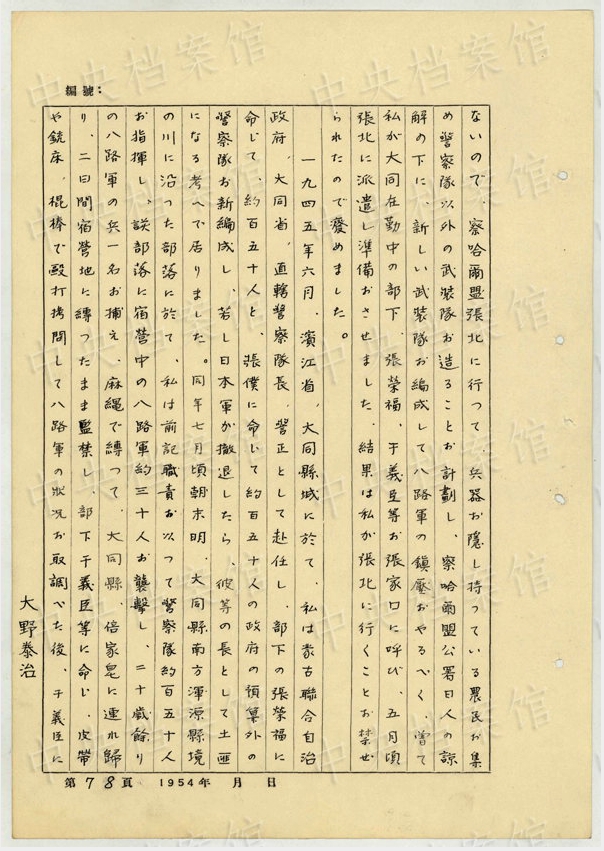 編號：
ないので、察哈爾盟張北に行つて、兵器お隠し持つている農民お集
め警察隊以外の武装隊お造ることお計劃し、察哈爾盟公署日人の諒
解の下に、新しい武装隊お編成して八路軍の鎮壓おやるべく、曽て
私が大同在勤中の部下、張荣福、于義臣等お張家口に呼び、五月頃
張北に派遣し準備おさせました、結果は私が張北に行くことお禁ぜ
られたので癈めました。
一九四五年六月、濱江省、大同縣城に於て、私は蒙古聯合自治
政府、大同省、直轄警察隊長、警正として赴任し、部下の張荣福に
命じて、約百五十人と、張僕に命じて約百五十人の政府の預算外の
警察隊お新編成し、若し日本軍が撤退したら、彼等の長として土匪
になる考へで居りました。同年七月頃朝未明、大同縣南方渾源縣境
の川に沿つた部落に於て、私は前記職責お以つて警察隊約百五十人
お指揮し、該部落に宿營中の八路軍約三十人お襲擊し、二十歳餘り
の八路軍の兵一名お捕え、麻縄で縛つて、大同縣、倍家皂に連れ歸
り、二日間宿營地に縛つたまま監禁し、部下于義臣等に命じ、皮帯
や銃床、棍棒で毆打拷問して八路軍の狀況お取調べた後、于義臣に
大野泰治
第78頁 1954年 月 日
中央档案馆